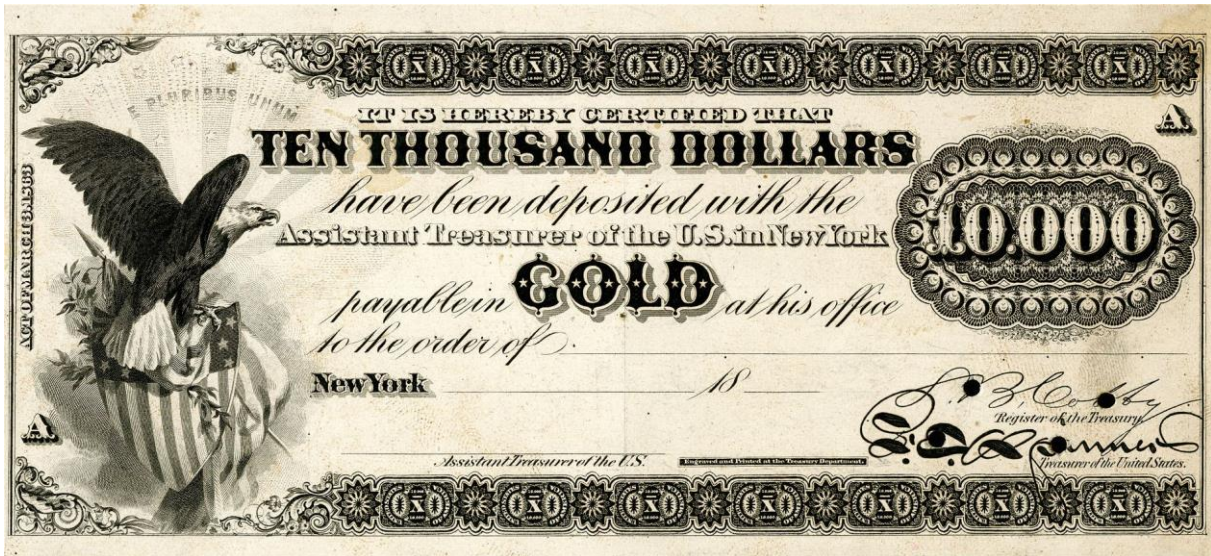 E PLURIBUS UNUM
ACT OF MARCH 3, 1863
A
IT IS HEREBY CERTIFIED THAT
TEN THOUSAND DOLLARS
have been deposited with the
Assistant Treasurer of the U.S. in New York
10.000
payable in GOLD at his office
to the order of
New York 18
S. B. Colby
Register of the Treasury
F. E. Spinner
Treasurer of the United States.
A
Assistant Treasurer of the U.S.
Engraved and Printed at the Treasury Department.